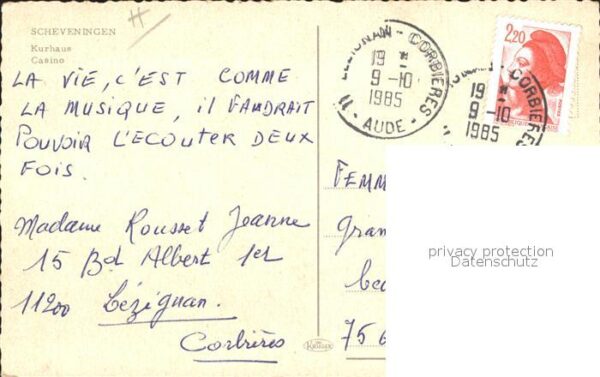 SCHEVENINGEN
Kurhaus
Casino
LA VIE, C'EST COMME
LA MUSIQUE, il FAUDRAIT
POUVOIR L'ECOUTER DEUX
FOIS.
Madame Rousset Jeanne
15 Bd Albert 1er
11200 Lézignan.
Corbières
LEZIGNAN - CORBIERES
19 H
9-10
1985
11 - AUDE -
- CORBIERES
19 H
9-10
1985
2,20
FEMM
Gran
75 6
privacy protection
Datenschutz
KRUGER